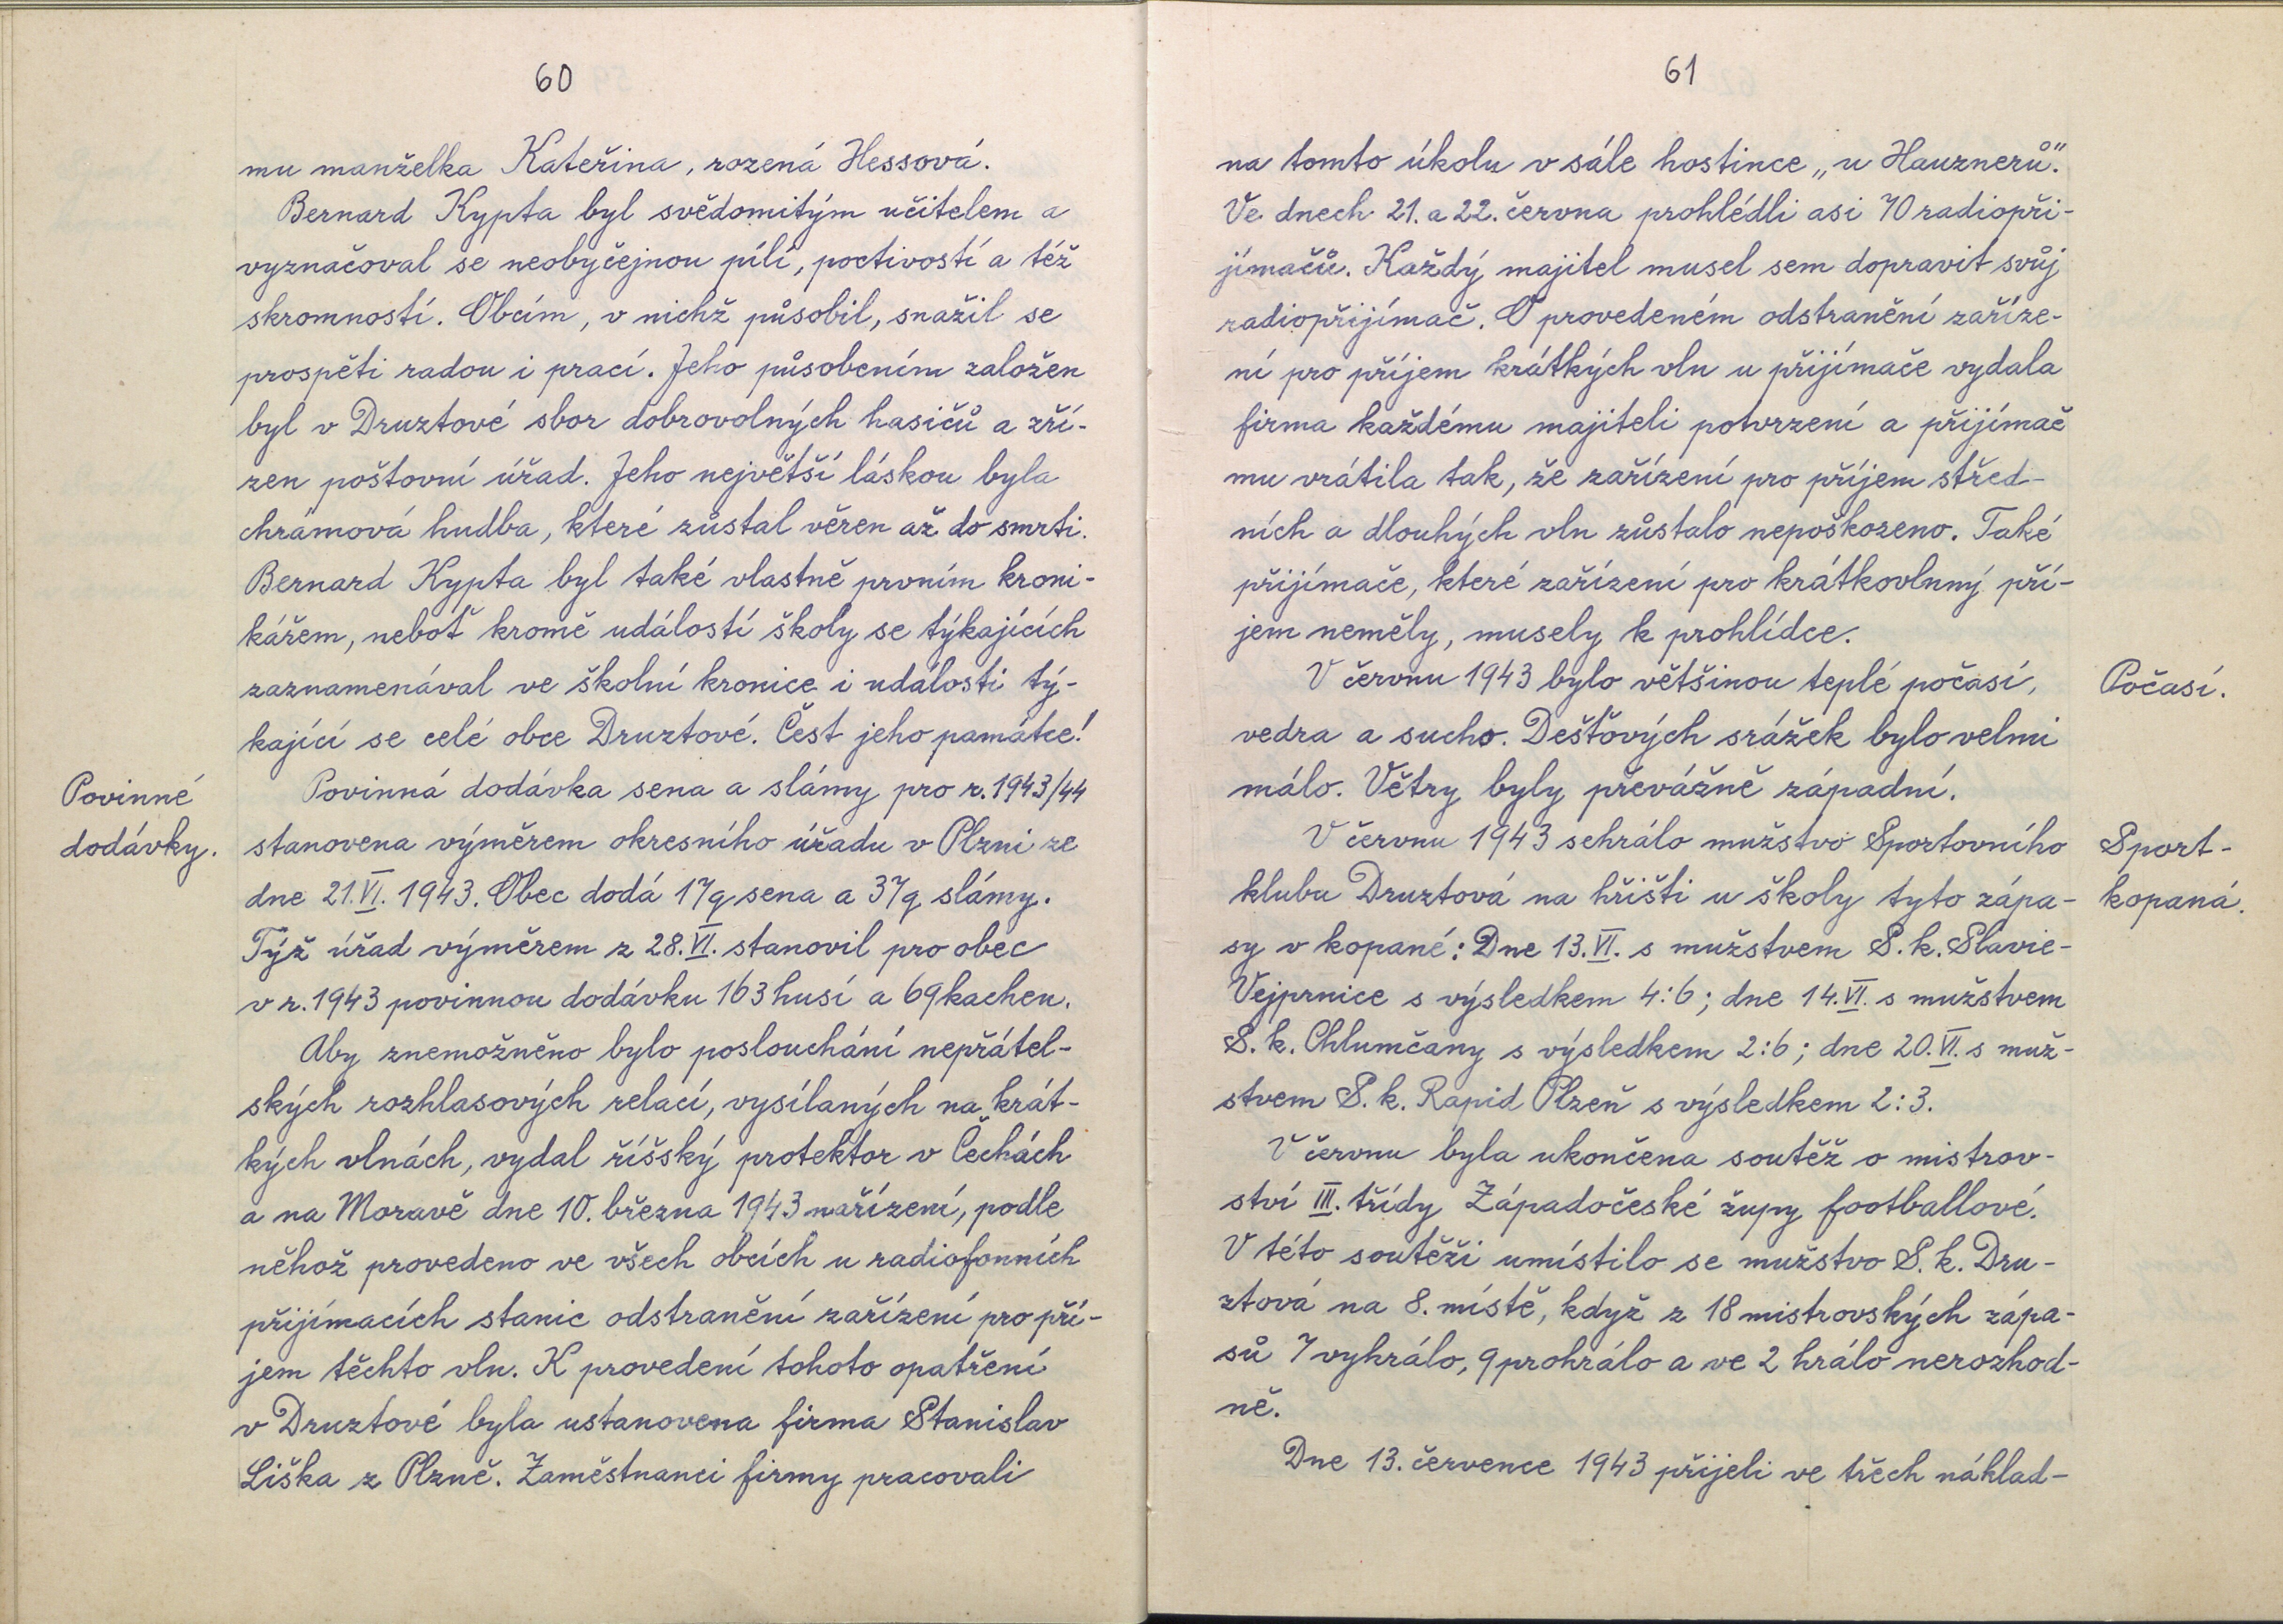 60
mu manželka Kateřina, rozená Hessová.
Bernard Kypta byl svědomitým učitelem a
vyznačoval se neobyčejnou pílí, poctivostí a též
skromností. Obcím, v nichž působil, snažil se
prospěti radou i prací. Jeho působením založen
byl v Druztové sbor dobrovolných hasičů a zří-
zen poštovní úřad. Jeho největší láskou byla
chrámová hudba, které zůstal věren až do smrti.
Bernard Kypta byl také vlastně prvním kroni-
kářem, neboť kromě událostí školy se týkajících
zaznamenával ve školní kronice i události tý-
kající se celé obce Druztové. Čest jeho památce!
Povinné
dodávky.
Povinná dodávka sena a slámy pro r. 1943/44
stanovena výměrem okresního úřadu v Plzni ze
dne 21.VI. 1943. Obec dodá 17q sena a 37q slámy.
Týž úřad výměrem z 28.VI. stanovil pro obec
v r. 1943 povinnou dodávku 163 husí a 69 kachen.
Aby znemožněno bylo poslouchání nepřátel-
ských rozhlasových relací, vysílaných na krát-
kých vlnách, vydal říšský protektor v Čechách
a na Moravě dne 10. března 1943 nařízení, podle
něhož provedeno ve všech obcích u radiofonních
přijímacích stanic odstranění zařízení pro pří-
jem těchto vln. K provedení tohoto opatření
v Druztové byla ustanovena firma Stanislav
Liška z Plzně. Zaměstnanci firmy pracovali
61
na tomto úkolu v sále hostince „u Hauznerů".
Ve dnech 21. a 22. června prohlédli asi 70 radiopři-
jímačů. Každý majitel musel sem dopravit svůj
radiopřijímač. O provedeném odstranění zaříze-
ní pro příjem krátkých vln u přijímače vydala
firma každému majiteli potvrzení a přijímač
mu vrátila tak, že zařízení pro příjem střed-
ních a dlouhých vln zůstalo nepoškozeno. Také
přijímače, které zařízení pro krátkovlnný pří-
jem neměly, musely k prohlídce.
Počasí.
V červnu 1943 bylo většinou teplé počasí,
vedra a sucho. Dešťových srážek bylo velmi
málo. Větry byly převážně západní.
Sport-
kopaná.
V červnu 1943 sehrálo mužstvo Sportovního
klubu Druztová na hřišti u školy tyto zápa-
sy v kopané: Dne 13.VI. s mužstvem S.k. Slavie-
Vejprnice s výsledkem 4:6; dne 14.VI. s mužstvem
S.k. Chlumčany s výsledkem 2:6; dne 20.VI. s muž-
stvem S.k. Rapid Plzeň s výsledkem 2:3.
V červnu byla ukončena soutěž o mistrov-
ství III. třídy Západočeské župy footballové.
V této soutěži umístilo se mužstvo S.k. Dru-
ztová na 8. místě, když z 18 mistrovských zápa-
sů 7 vyhrálo, 9 prohrálo a ve 2 hrálo nerozhod-
ně.
Dne 13. července 1943 přijeli ve třech náklad-